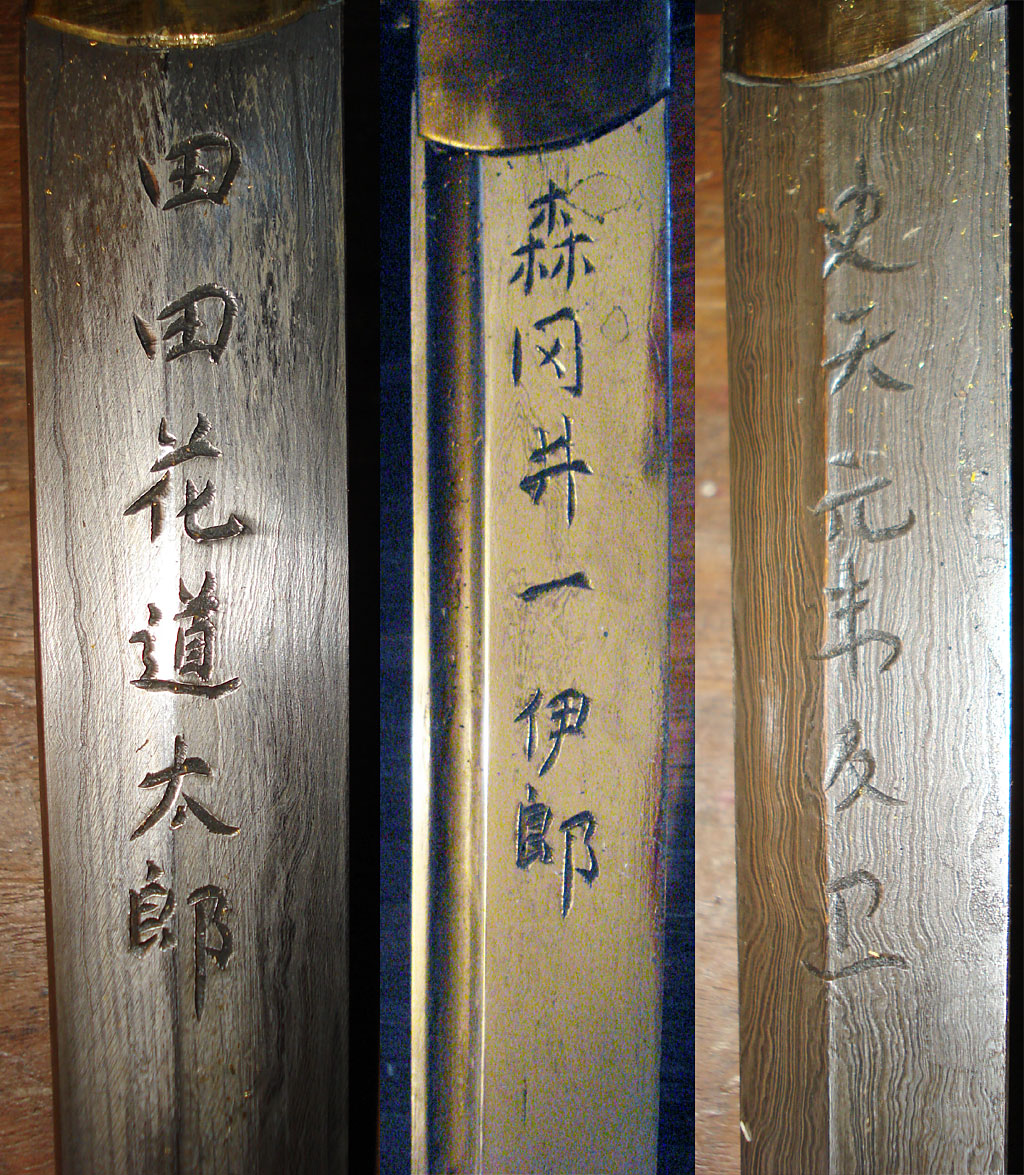 田田花道太郎
森冈井一伊郎
史天元卫